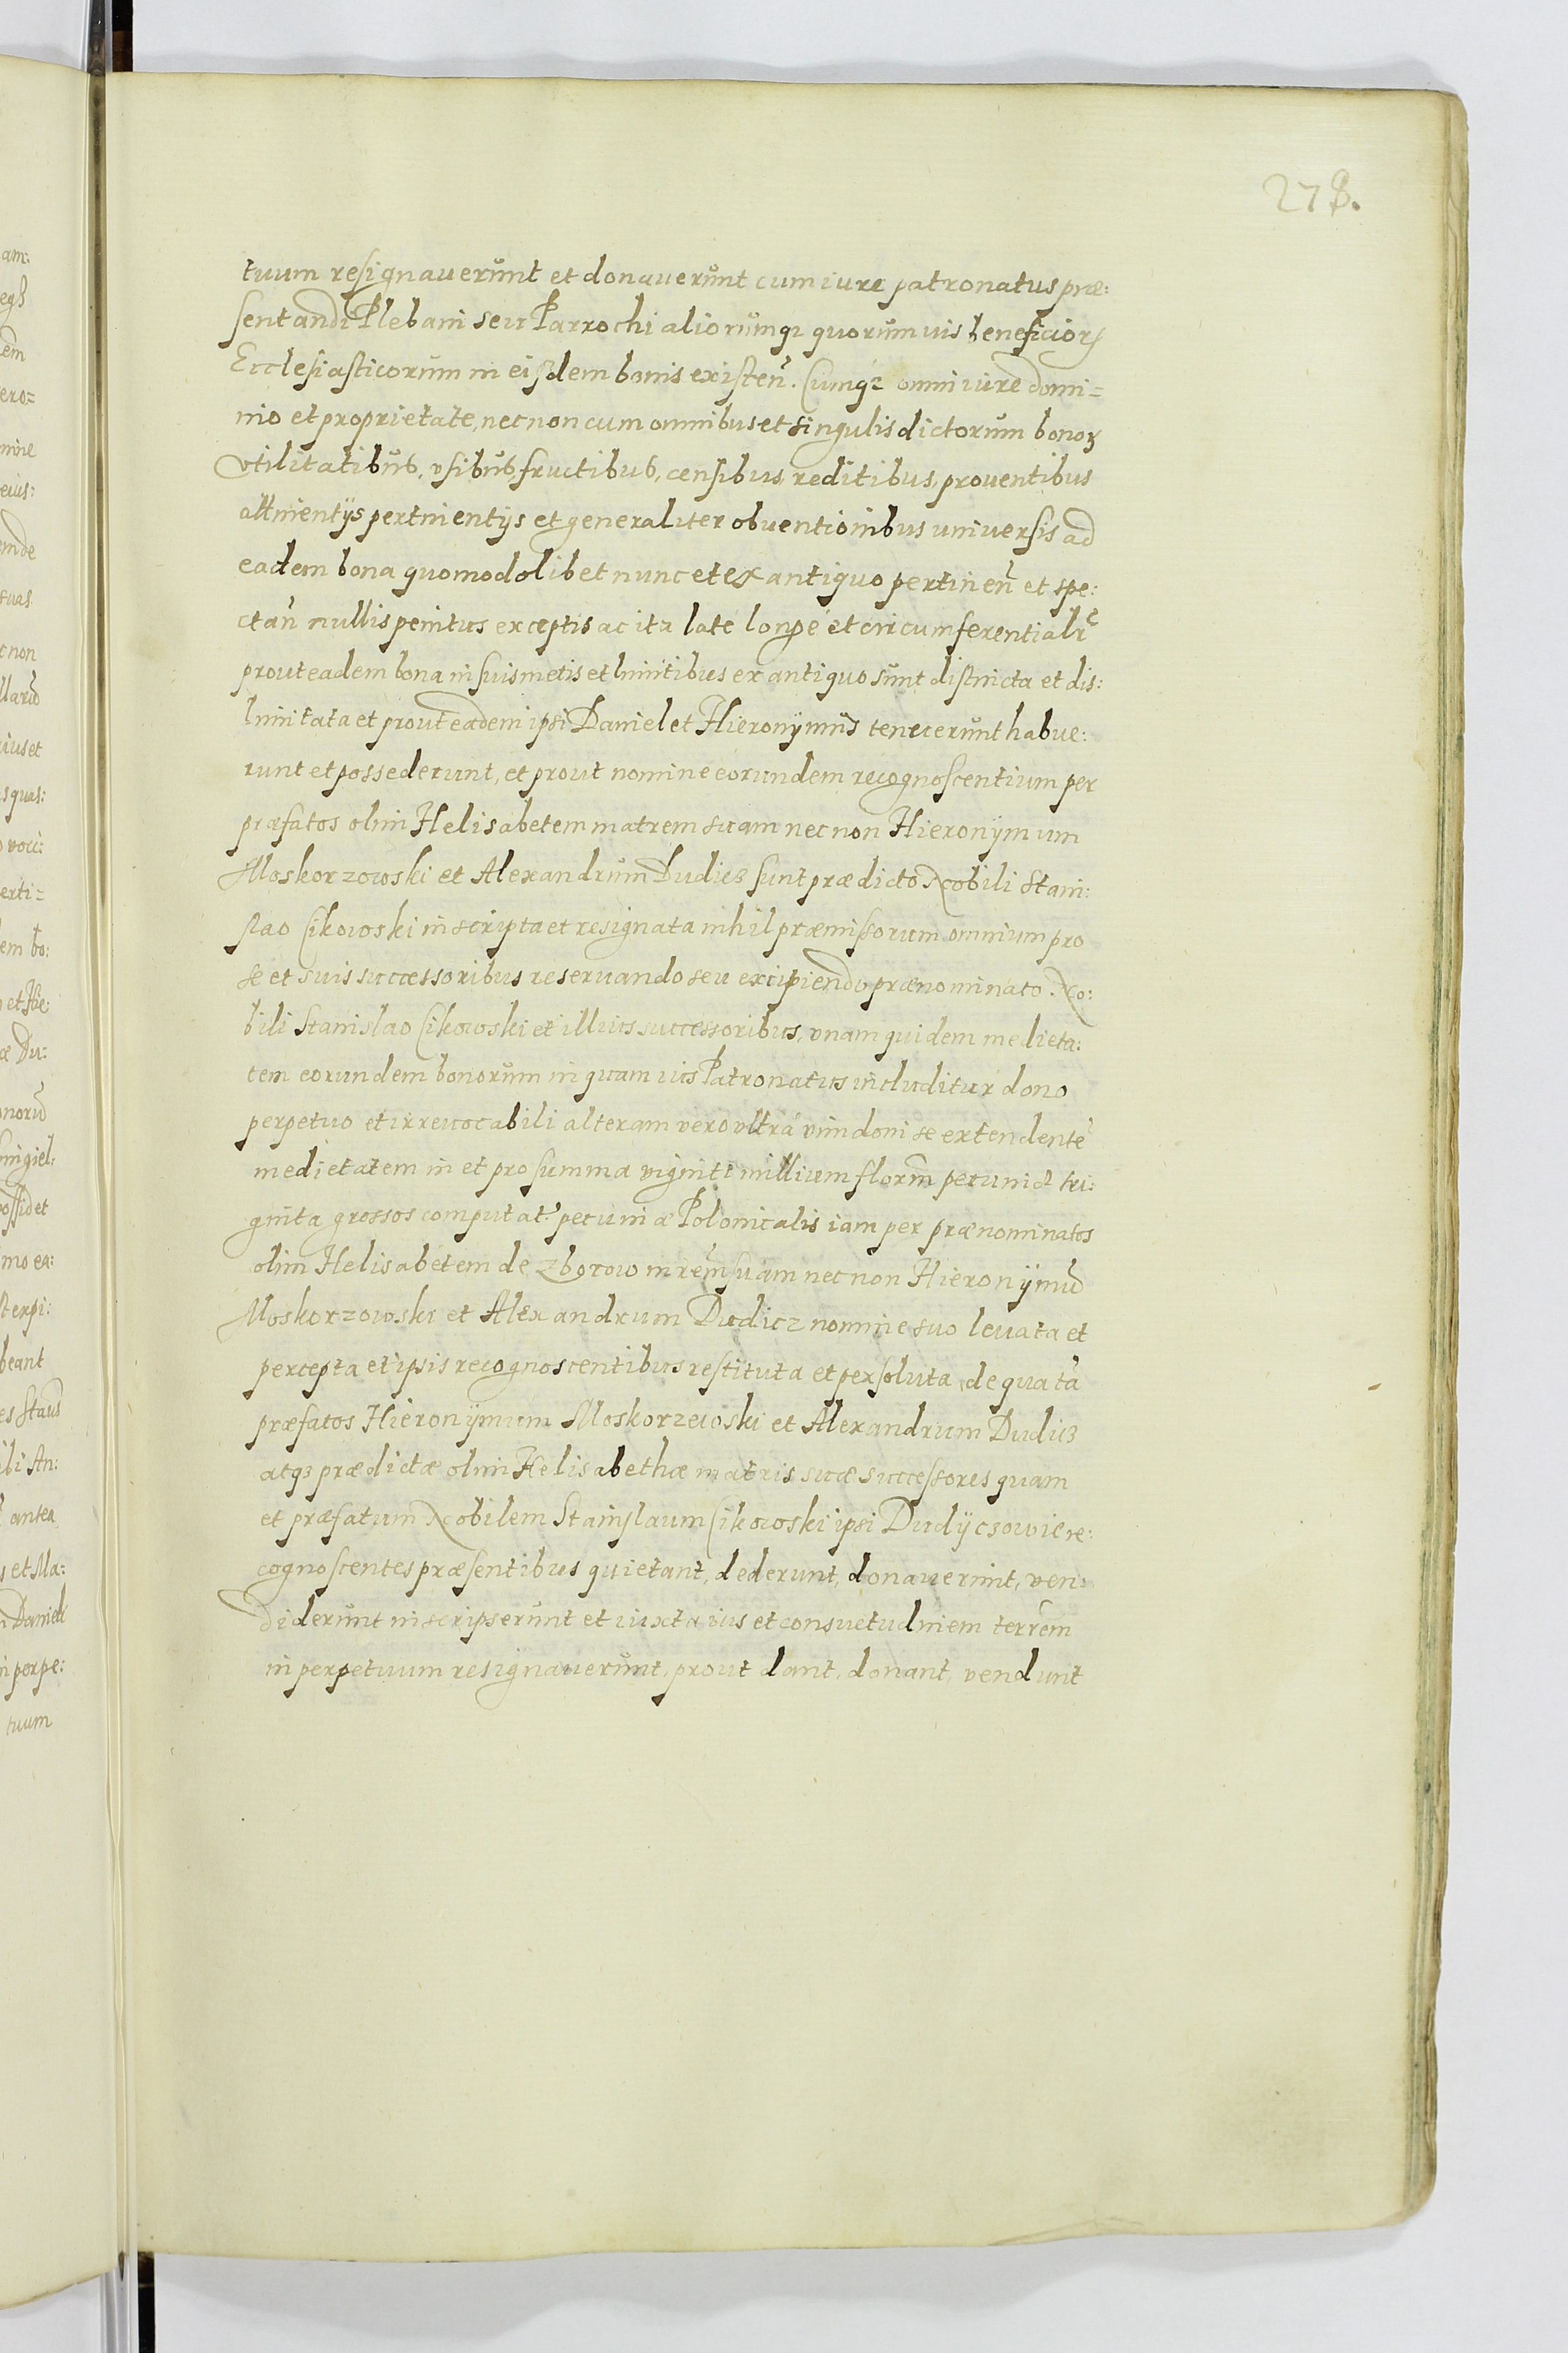 278.
tuum resignaverunt et donaverunt cum iure patronatus præ:
sentandi Plebani seu Parrochi aliorumqz quorumvis beneficior
Ecclesiasticorum in eisdem bonis existen. Cumqz omni iure domi=
nio et proprietate, nec non cum omnibus et singulis dictorum bonor
vtilitatibus, vsibus, fructibus, censibus, reditibus, proventibus
attinentijs pertinentijs et generaliter obventionibus universis ad
eadem bona quomodolibet nunc et ex antiquo pertinen et spe:
ctan nullis penitus exceptis ac ita late longe et circumferentialr
prout eadem bona in suis metis et limitibus ex antiquo sunt districta et dis:
limitata et prout eadem ipsi Daniel et Hieronymus tenuerunt habue:
runt et possederunt, et prout nomine eorundem recognoscentium per
præfatos olim Helisabetem matrem suam nec non Hieronymum
Moskorzowski et Alexandrum Dudicz sunt prædicto Nobili Stani:
slao Cikowski inscripta et resignata nihil præmissorum omnium pro
se et suis successoribus reservando seu excipiendo prænominato No:
bili Stanislao Cikowski et illius successoribus, vnam quidem medieta:
tem eorundem bonorum in quam ius Patronatus includitur dono
perpetuo et irrevocabili alteram vero vltra vim doni se extendente
medietatem in et pro summa viginti millium florm pecuniæ tri:
ginta grossos computat. pecuniæ Polonicalis iam per prænominatos
olim Helisabetem de Zborow mrem suam nec non Hieronymu
Moskorzowski et Alexandrum Dudicz nomine suo levata et
percepta et ipsis recognoscentibus restituta et persoluta, de qua ta
præfatos Hieronymum Moskorzewski et Alexandrum Dudicz
atqz prædictæ olim Helisabethæ matris suæ successores quam
et præfatum Nobilem Stanislaum Cikowski ipsi Dudijcsowie re:
cognoscentes præsentibus quietant, dederunt, donaverunt, ven:
diderunt inscripserunt et iuxta ius et consuetudinem terrem
in perpetuum resignaverunt, prout dant, donant, vendunt